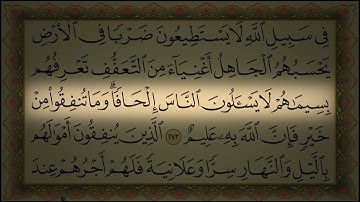 فِى سَبِيلِ ٱللَّهِ لَا يَسْتَطِيعُونَ ضَرْبًا فِى ٱلْأَرْضِ
يَحْسَبُهُمُ ٱلْجَاهِلُ أَغْنِيَآءَ مِنَ ٱلتَّعَفُّفِ تَعْرِفُهُم
بِسِيمَٰهُمْ لَا يَسْـَٔلُونَ ٱلنَّاسَ إِلْحَافًا ۗ وَمَا تُنفِقُوا۟ مِنْ
خَيْرٍ فَإِنَّ ٱللَّهَ بِهِۦ عَلِيمٌ ٢٧٣ ٱلَّذِينَ يُنفِقُونَ أَمْوَٰلَهُم
بِٱلَّيْلِ وَٱلنَّهَارِ سِرًّا وَعَلَانِيَةً فَلَهُمْ أَجْرُهُمْ عِندَ